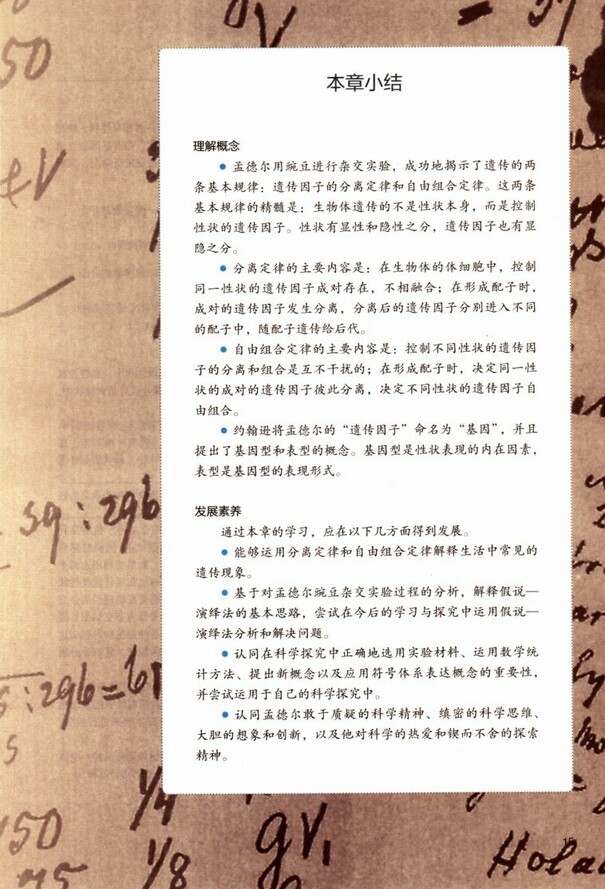 本章小结
理解概念
● 孟德尔用豌豆进行杂交实验，成功地揭示了遗传的两
条基本规律：遗传因子的分离定律和自由组合定律。这两条
基本规律的精髓是：生物体遗传的不是性状本身，而是控制
性状的遗传因子。性状有显性和隐性之分，遗传因子也有显
隐之分。
● 分离定律的主要内容是：在生物体的体细胞中，控制
同一性状的遗传因子成对存在，不相融合；在形成配子时，
成对的遗传因子发生分离，分离后的遗传因子分别进入不同
的配子中，随配子遗传给后代。
● 自由组合定律的主要内容是：控制不同性状的遗传因
子的分离和组合是互不干扰的；在形成配子时，决定同一性
状的成对的遗传因子彼此分离，决定不同性状的遗传因子自
由组合。
● 约翰逊将孟德尔的“遗传因子”命名为“基因”，并且
提出了基因型和表型的概念。基因型是性状表现的内在因素，
表型是基因型的表现形式。
发展素养
通过本章的学习，应在以下几方面得到发展。
● 能够运用分离定律和自由组合定律解释生活中常见的
遗传现象。
● 基于对孟德尔豌豆杂交实验过程的分析，解释假说—
演绎法的基本思路，尝试在今后的学习与探究中运用假说—
演绎法分析和解决问题。
● 认同在科学探究中正确地选用实验材料、运用数学统
计方法、提出新概念以及应用符号体系表达概念的重要性，
并尝试运用于自己的科学探究中。
● 认同孟德尔敢于质疑的科学精神、缜密的科学思维、
大胆的想象和创新，以及他对科学的热爱和锲而不舍的探索
精神。
50
sq : 296
: 296 = 61
1/4
1/8